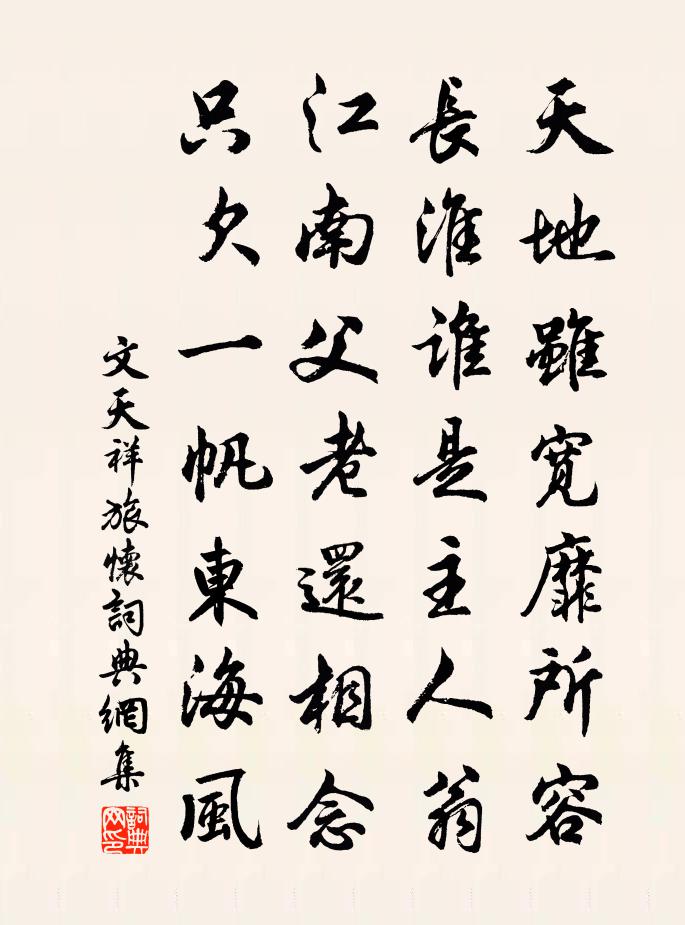 天地雖寬靡所容
長淮誰是主人翁
江南父老還相念
只欠一帆東海風
文天祥旅懷詞典網集
詞典網印